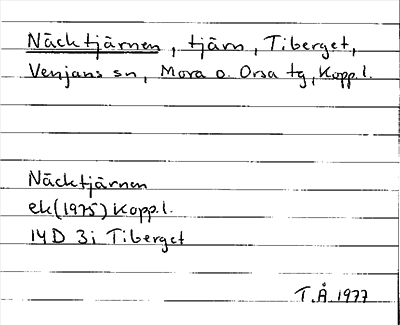 Näcktjärnen, tjärn, Tiberget,
Venjans sn, Mora o. Orsa tg, Kopp. l.
Näcktjärnen
ek (1975) Kopp. l.
14D 3i Tiberget
T.Å 1977